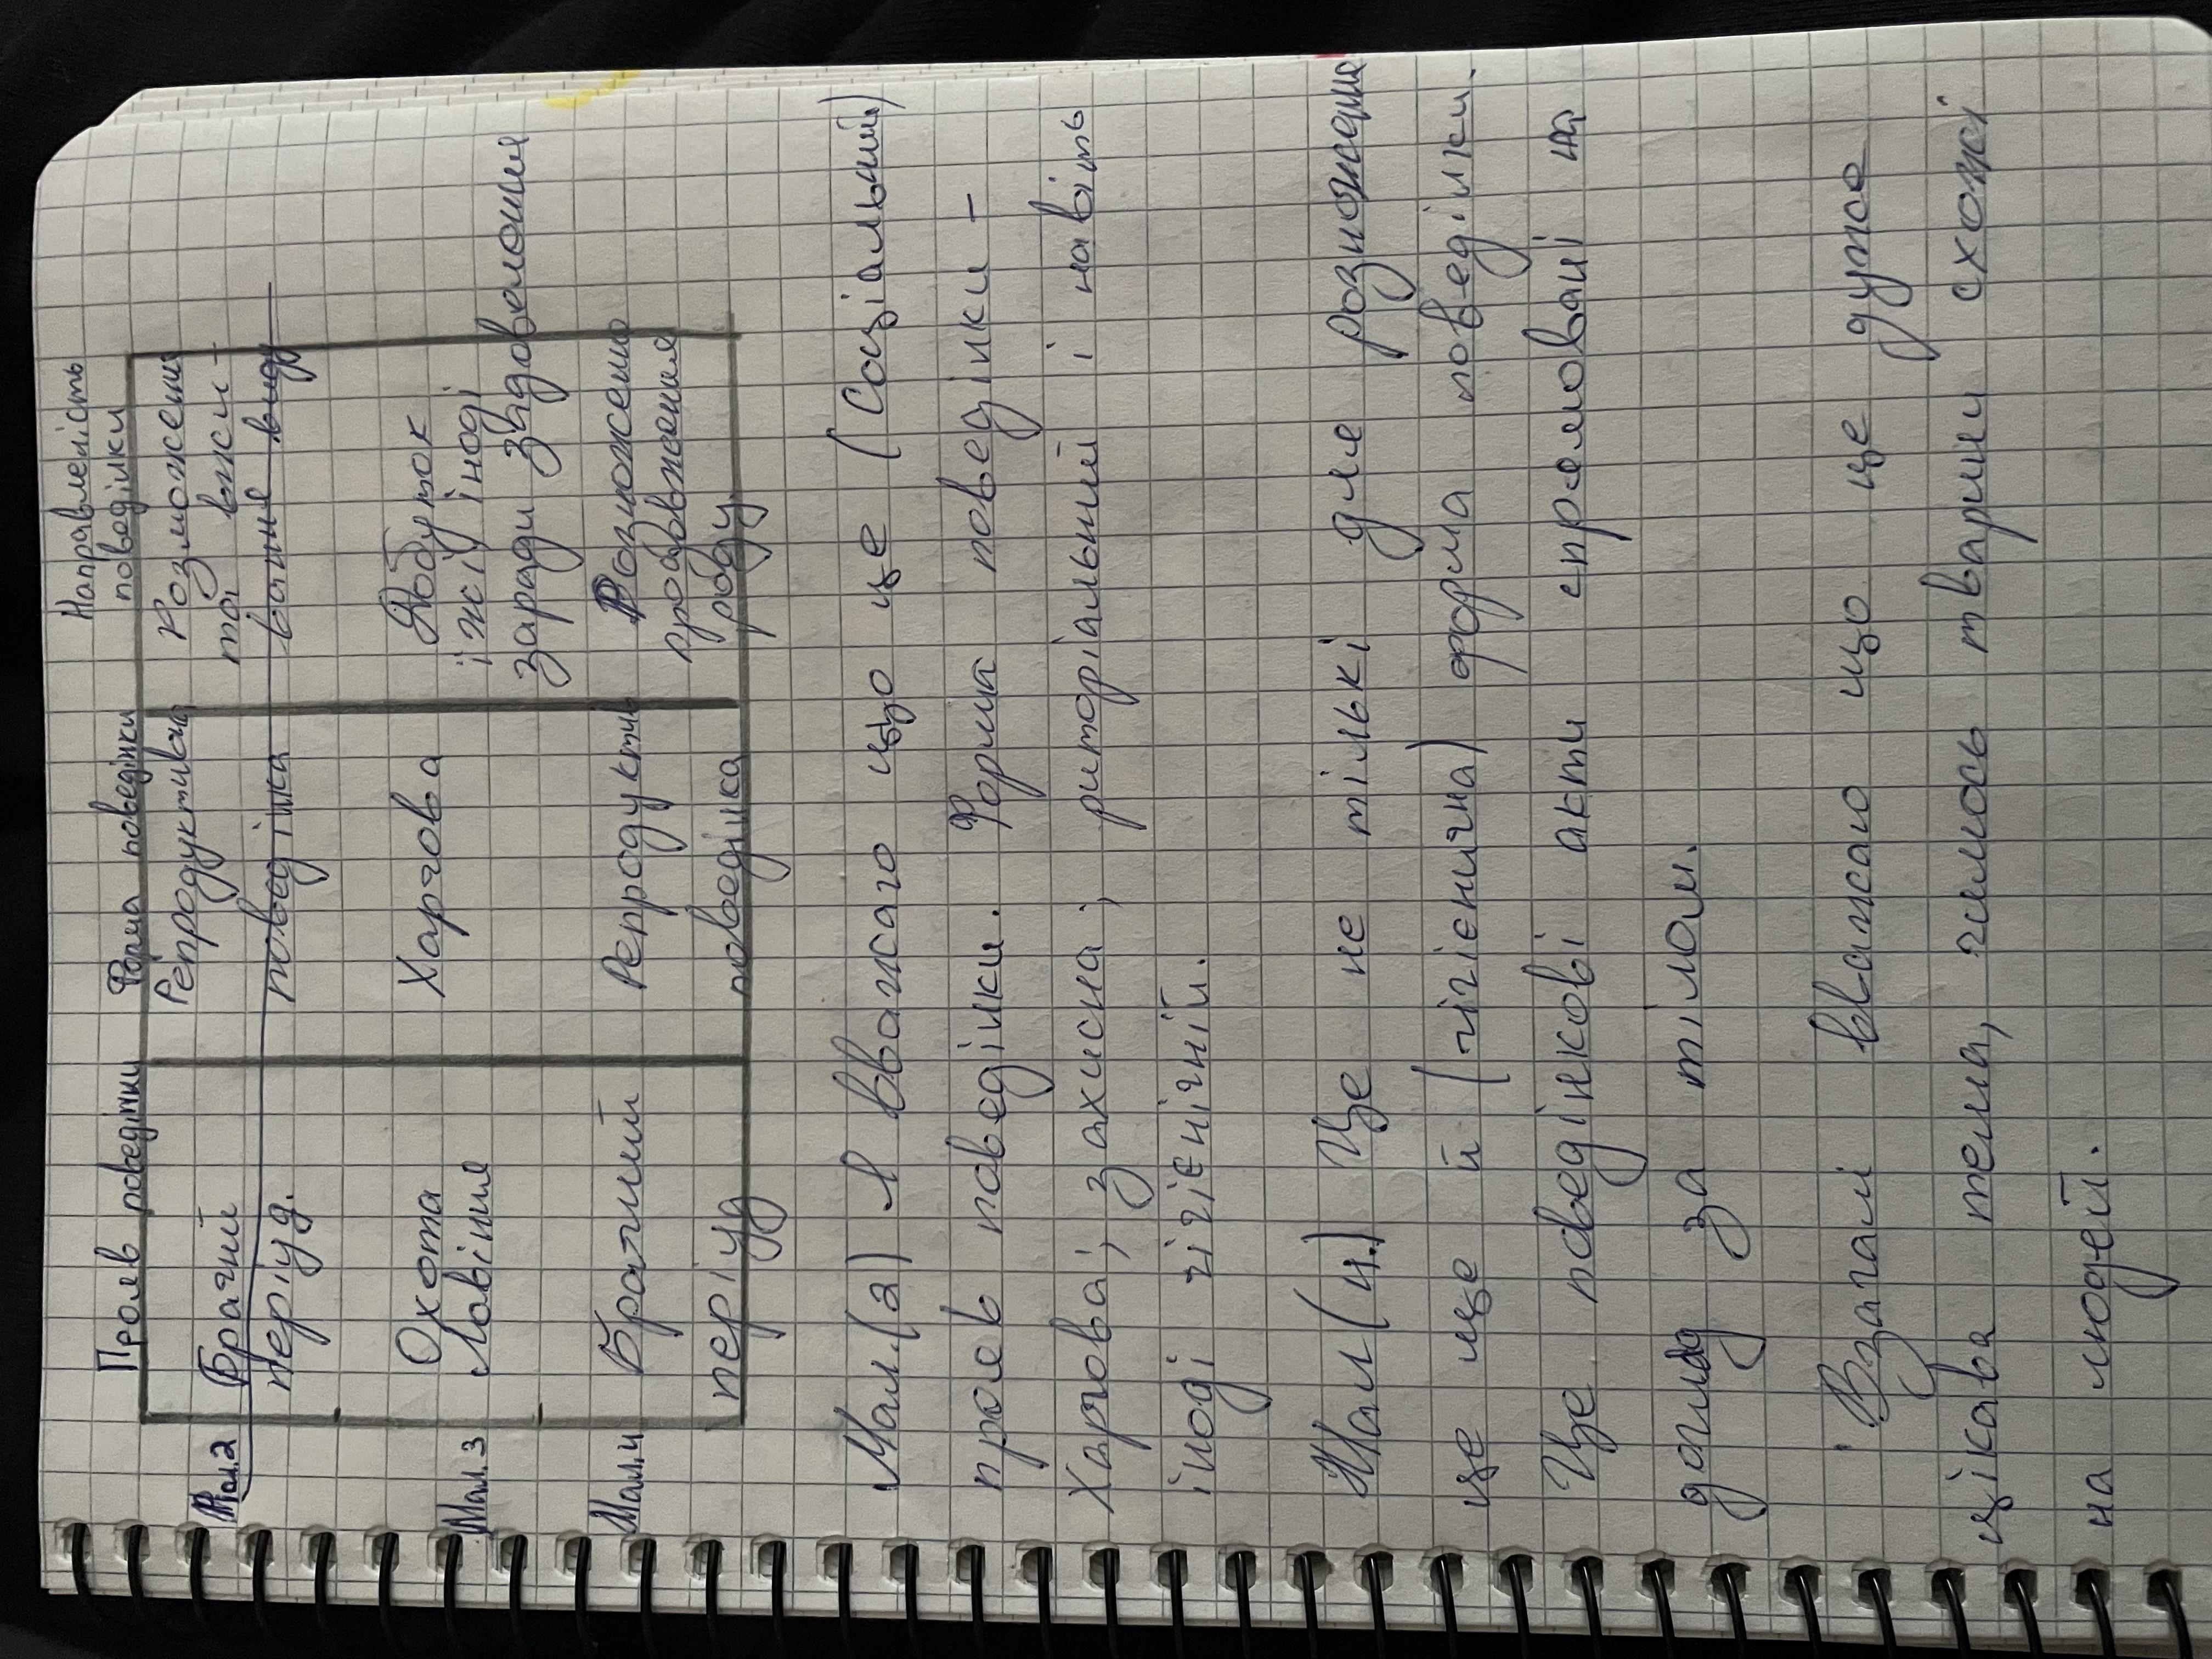 Прояв поведінки Форма поведінки Направленість поведінки
Мал.2 Брачній Репродуктивна Розможення
та вжи-
період. поведінка вання виду
Мал.3 Охота Харчова Добуток
ловіння їжі, іноді
заради задоволення
Мал.4 Брачний Репродуктив Розмоножено
продовження
період поведінка роду.
Мал.(2) Я вважаю що це (Соціальний)
прояв поведінки. Форма поведінки -
Харчова; захисна; риторіальний і навіть
іноді гігієнічній.
Мал(4.) Це не тільки для розноження
це ще й (гігієнична) форма поведінки.
Це поведінкові акти спремовані на
догляд за тілом.
Взагалі вважаю що це дуже
цікава тема, чимось тварини схожі
на людей.